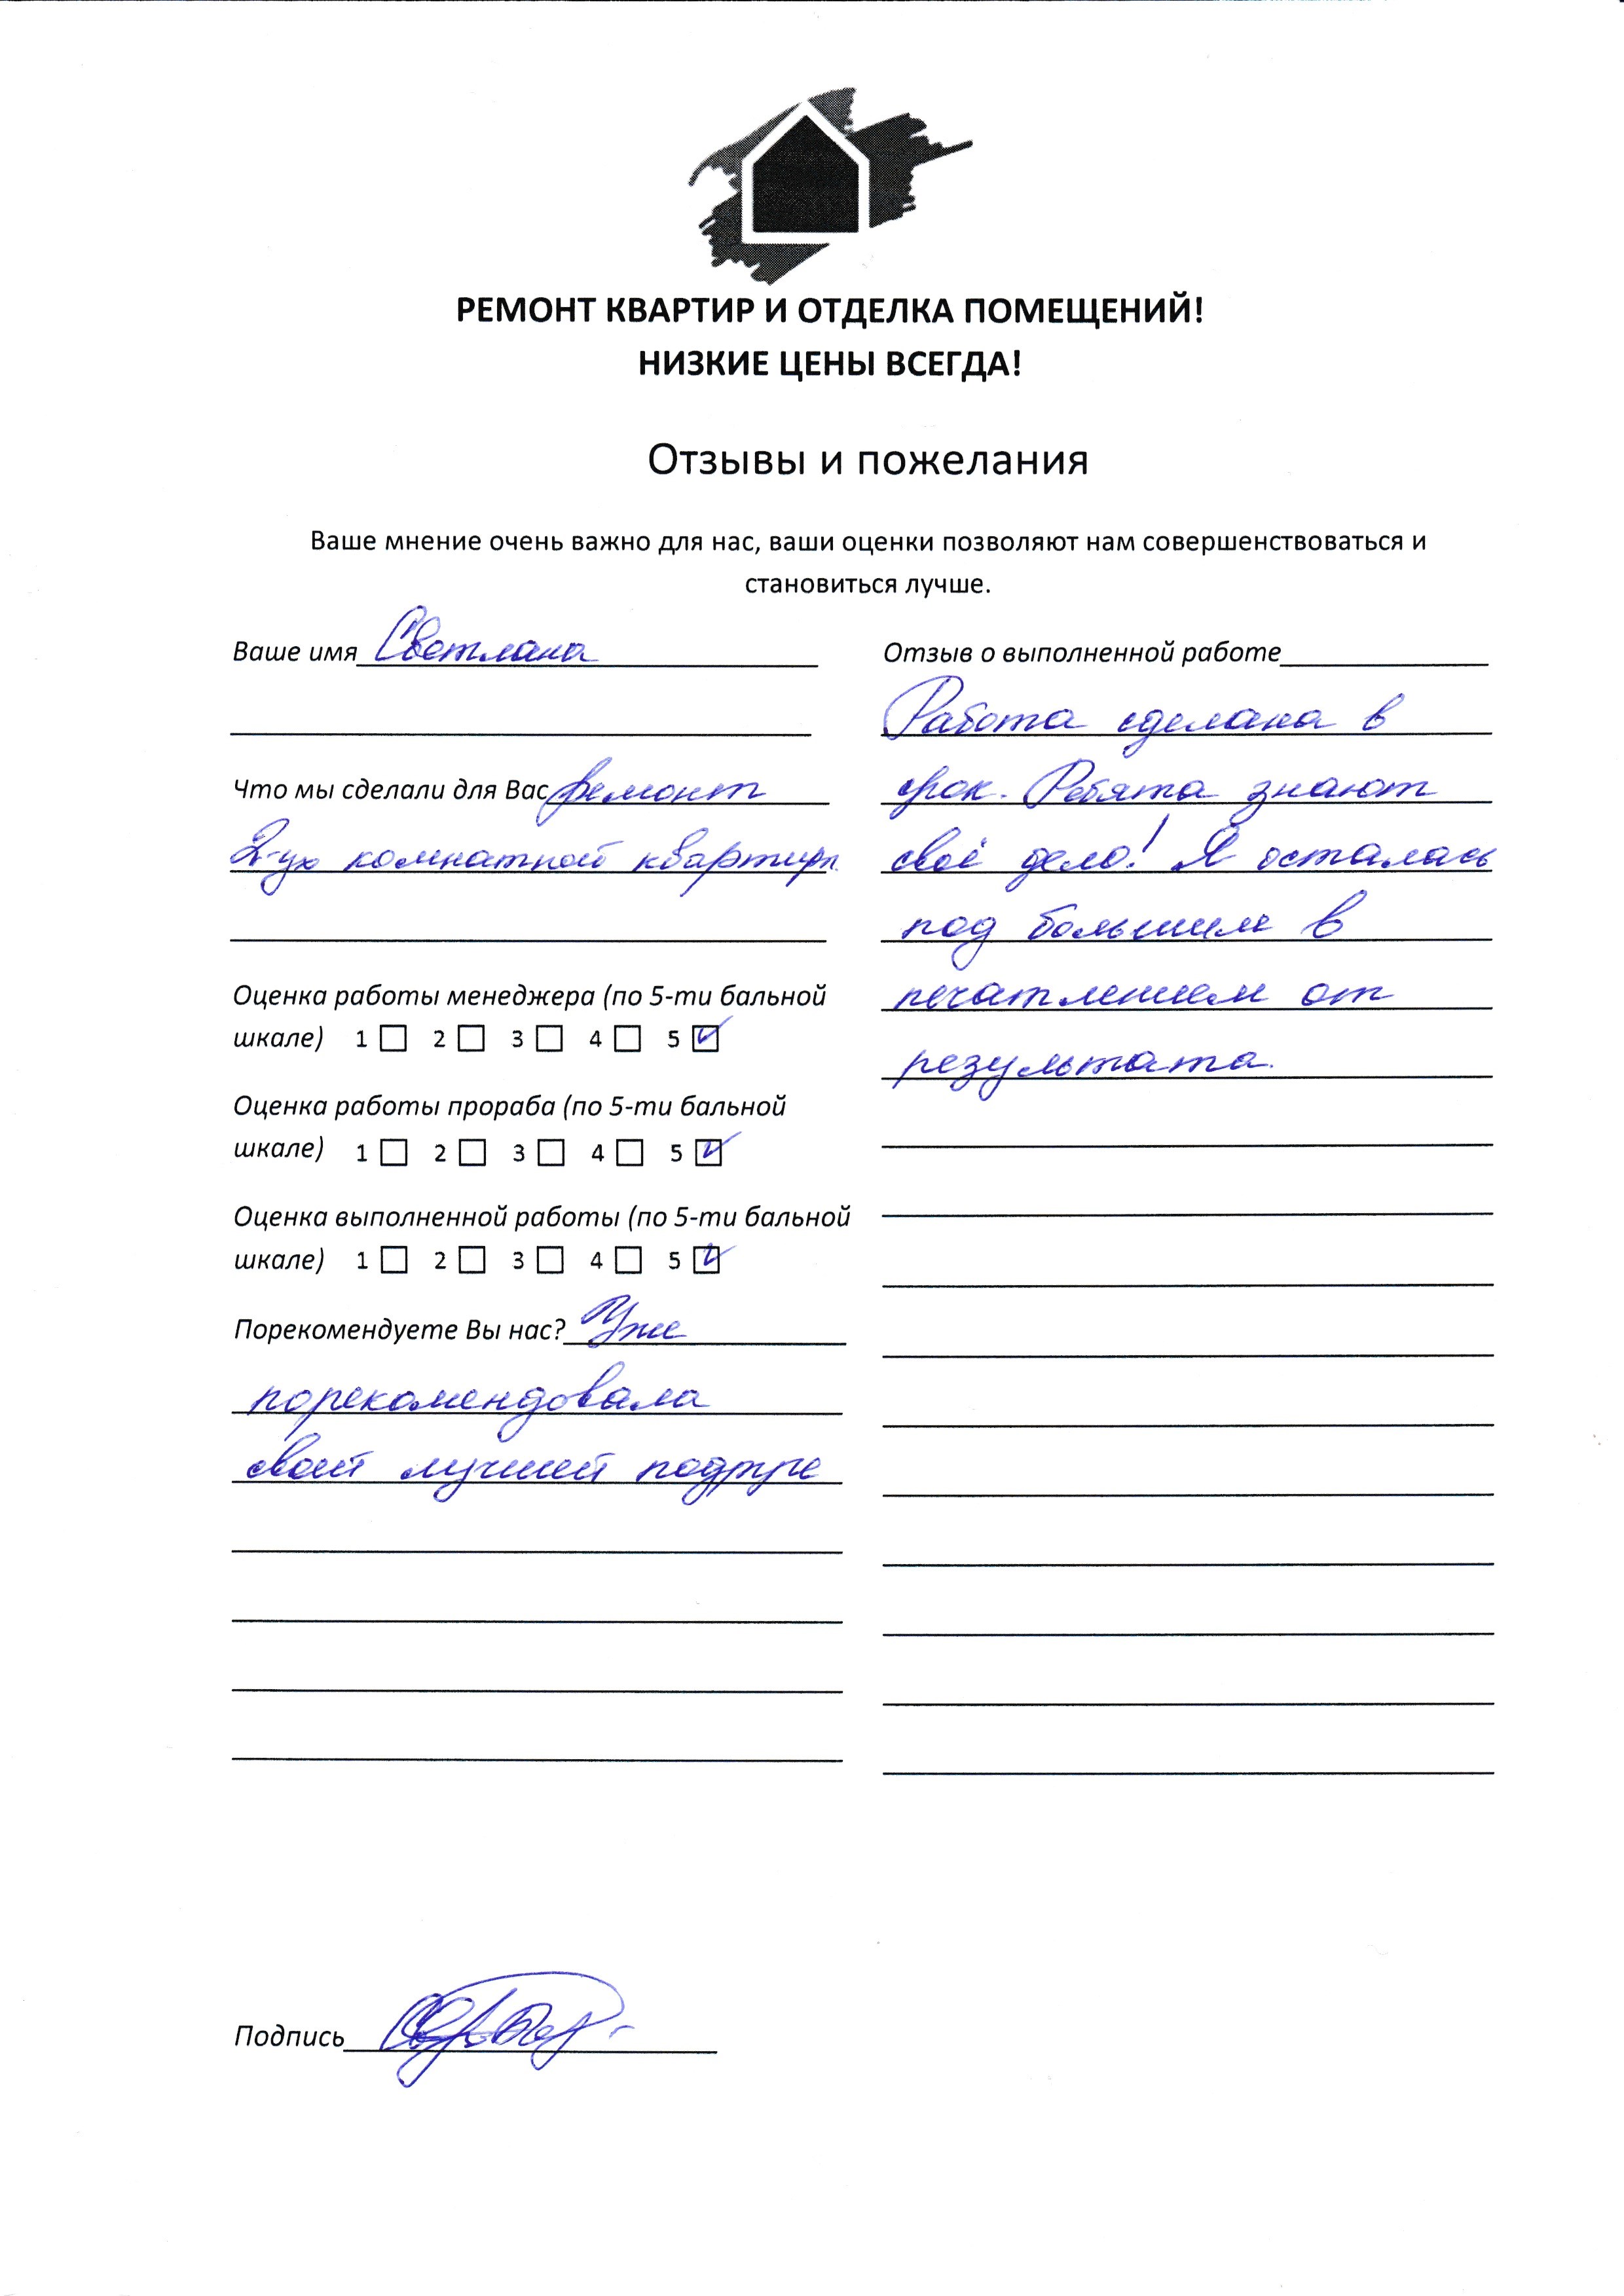 РЕМОНТ КВАРТИР И ОТДЕЛКА ПОМЕЩЕНИЙ!
НИЗКИЕ ЦЕНЫ ВСЕГДА!
Отзывы и пожелания
Ваше мнение очень важно для нас, ваши оценки позволяют нам совершенствоваться и
становиться лучше.
Ваше имя Светлана
Что мы сделали для Вас ремонт
2-ух комнатной квартиры
Оценка работы менеджера (по 5-ти бальной
шкале) 1 2 3 4 5
Оценка работы прораба (по 5-ти бальной
шкале) 1 2 3 4 5
Оценка выполненной работы (по 5-ти бальной
шкале) 1 2 3 4 5
Порекомендуете Вы нас? Уже
порекомендовала
своей лучшей подруге
Отзыв о выполненной работе
Работа сделана в
срок. Ребята знают
своё дело! Я осталась
под большим в
печатлением от
результата.
Подпись